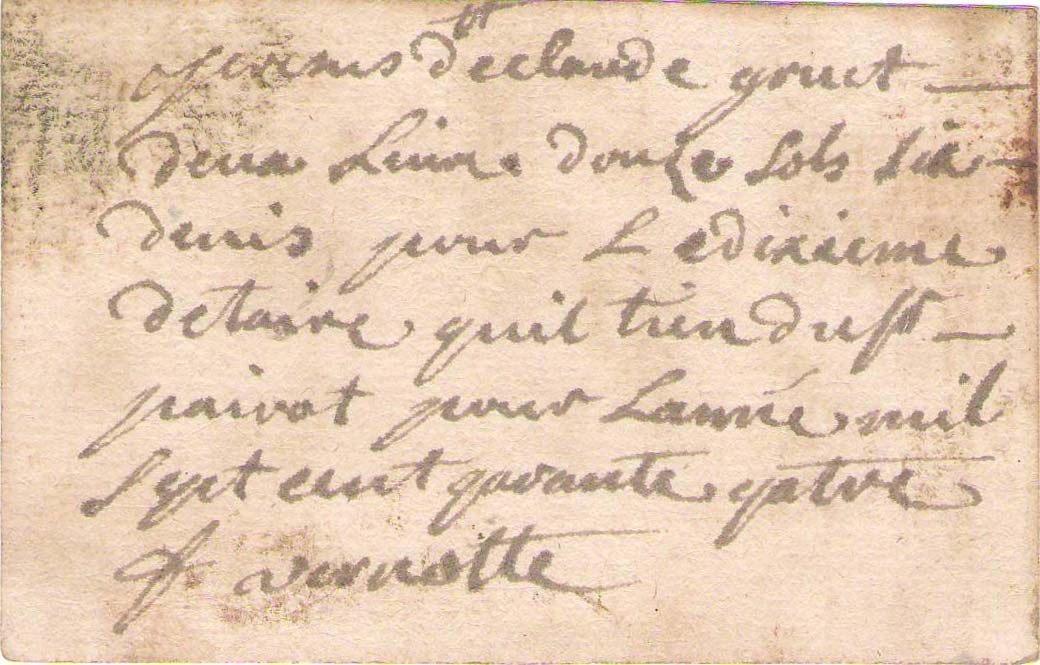 declaude gruet
deux Livre douze sols six
denis pour Ledixieme
detaire quil tien du sr
pairot pour Lanneé mil
sept cent qarante qatre
f vernotte